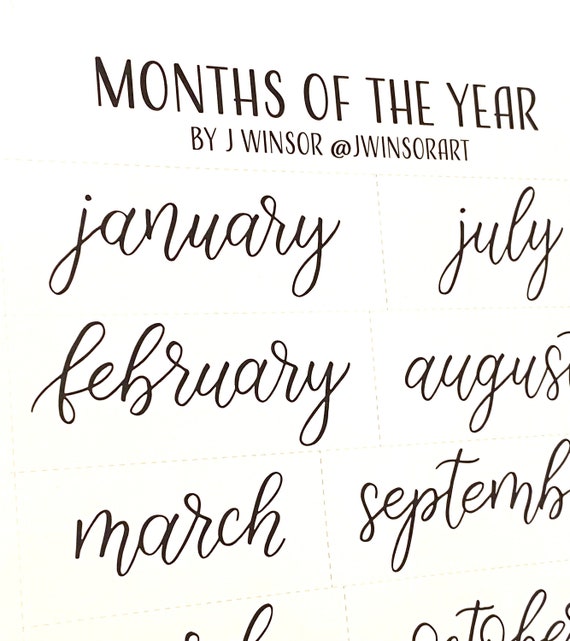 MONTHS OF THE YEAR
BY J WINSOR @JWINSORART
january july
february august
march